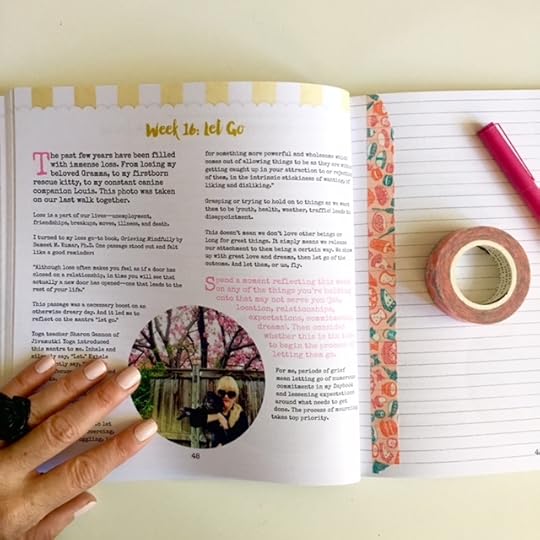 Week 16: Let Go
The past few years have been filled
with immense loss. From losing my
beloved Gramma, to my firstborn
rescue kitty, to my constant canine
companion Louis. This photo was taken
on our last walk together.
Loss is a part of our lives—unemployment,
friendships, breakups, moves, illness, and death.
I turned to my loss go-to book, Grieving Mindfully by
Sameet M. Kumar, Ph.D. One passage stood out and felt
like a good reminder:
"Although loss often makes you feel as if a door has
closed on a relationship, in time you will see that
actually a new door has opened—one that leads to the
rest of your life."
This passage was a necessary boost on an
otherwise dreary day. And it led me to
reflect on the mantra "let go."
Yoga teacher Sharon Gannon of
Jivamukti Yoga introduced
this mantra to me. Inhale and
silently say, "Let." Exhale
say,
to let
for something more powerful and wholesome which
comes out of allowing things to be as they are without
getting caught up in your attraction to or rejection
of them, in the intrinsic stickiness of wanting, of
liking and disliking."
Grasping or trying to hold on to things as we want
them to be (youth, health, weather, traffic) leads to
disappointment.
This doesn't mean we don't love other beings or
long for great things. It simply means we release
our attachment to them being a certain way. We
up with great love and dreams, then let go of the
outcome. And let them, or us, fly.
Spend a moment reflecting this week
on any of the things you're holding
onto that may not serve you (job,
location, relationships,
expectations, commitments,
dreams). Then consider
whether this is the time
to begin the process of
letting them go.
For me, periods of grief
mean letting go of numerous
commitments in my Daybook
and lessening expectations
around what needs to get
done. The process of mourning
takes top priority.
48